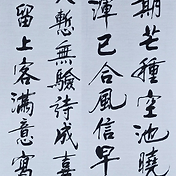 期芒種空池曉
渾已合風信早
慙無驗詩成喜
留上客滿意寫